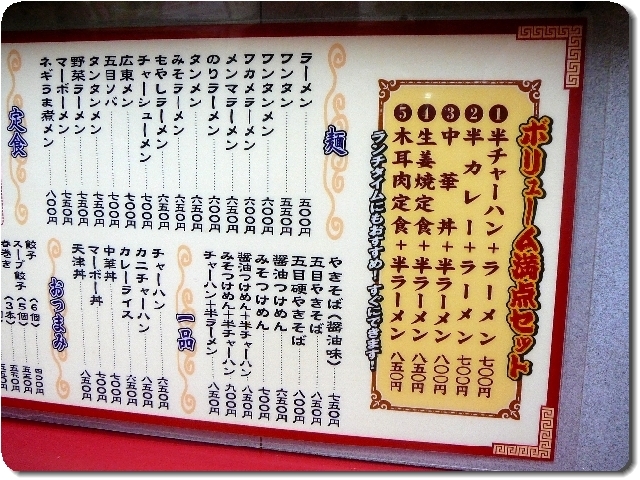 ボリューム満点セット
❶半チャーハン+ラーメン 七〇〇円
❷半カレー+ラーメン 七〇〇円
❸中華丼+半ラーメン 八〇〇円
❹生姜焼定食+半ラーメン 八五〇円
❺木耳肉定食+半ラーメン 八五〇円
ランチタイムにもおすすめ!すぐにできます!
麺
ラーメン 五〇〇円
ワンタン 五五〇円
ワンタンメン 六〇〇円
ワカメラーメン 六〇〇円
メンマラーメン 六五〇円
のりラーメン 六〇〇円
タンメン 六五〇円
みそラーメン 六五〇円
もやしラーメン 六五〇円
チャーシューメン 七〇〇円
広東メン 七〇〇円
五目ソバ 七〇〇円
タンタンメン 七五〇円
野菜ラーメン 七五〇円
マーボーメン 七五〇円
ネギうま煮メン 八〇〇円
やきそば(醤油味) 七五〇円
五目やきそば 八五〇円
五目硬やきそば 八〇〇円
醤油つけめん 六五〇円
みそつけめん 七〇〇円
醤油つけめん+半チャーハン 八五〇円
みそつけめん+半チャーハン 九〇〇円
チャーハン+半ラーメン 八五〇円
一品
チャーハン 六五〇円
カニチャーハン 八五〇円
カレーライス 六五〇円
中華丼 七〇〇円
マーボー丼 七〇〇円
天津丼 八五〇円
定食
おつまみ
餃子(6個) 四〇〇円
スープ餃子(5個) 五五〇円
春巻き(3本)